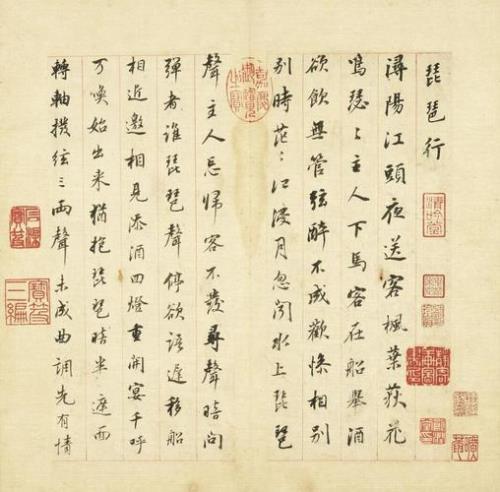 琵琶行
潯陽江頭夜送客楓葉荻花
瑟〻主人下馬客在船舉酒
欲飲無管弦醉不成歡慘相別
別時茫〻江浸月忽聞水上琵琶
聲主人忘歸客不發尋聲暗問
彈者誰琵琶聲停欲語遲移船
相近邀相見添酒回燈重開宴千呼
万喚始出來猶抱琵琶半遮面
轉軸撥弦三兩聲未成曲調先有情
嘉慶御覽之寶
石渠寶笈
寶笈三編